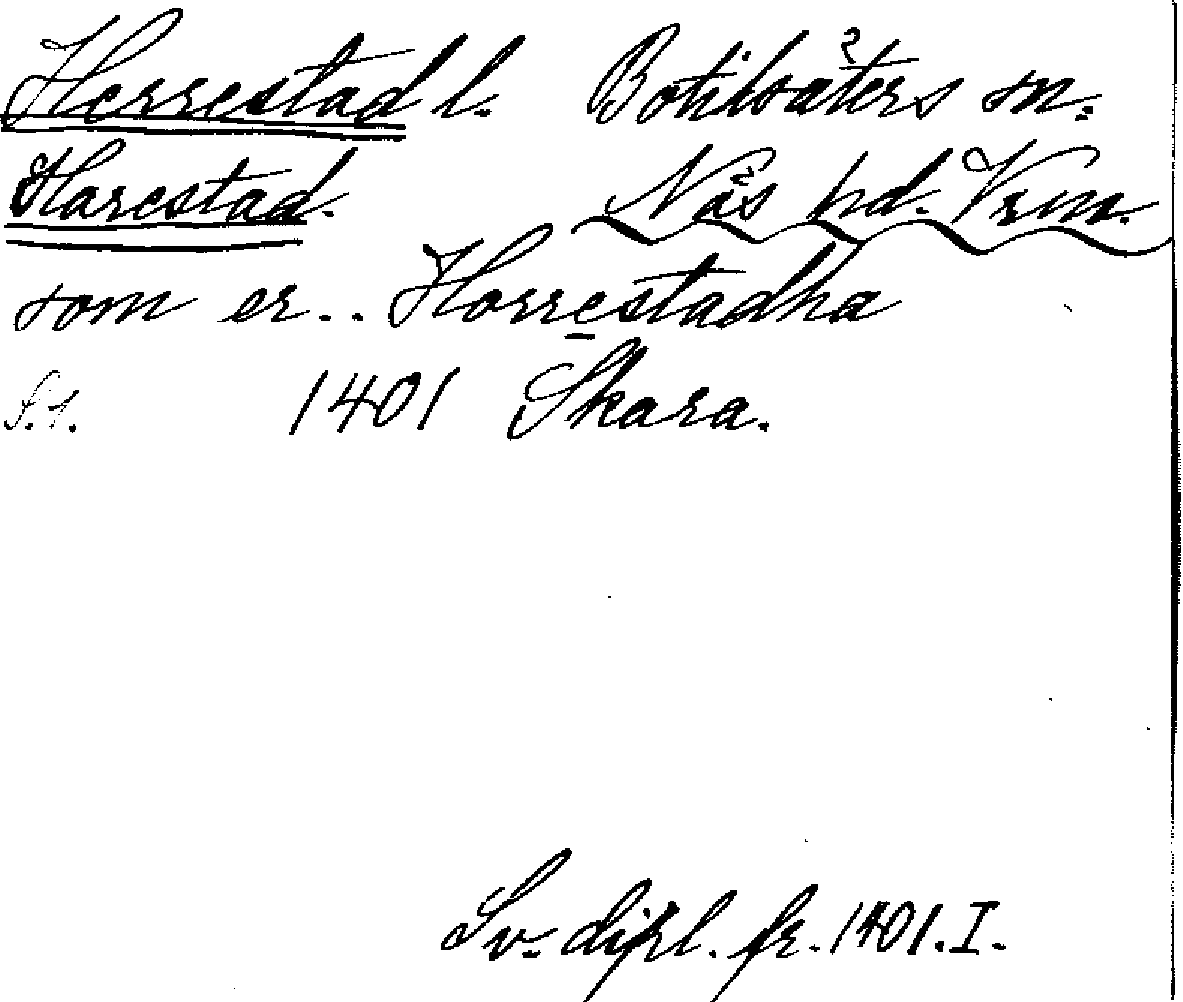 Herrestad l. Botilsäters sn.
Harestad. Näs hd. Vrm.
som er.. Horrestadha
S. 1. 1401 Skara.
Sv. dipl. fr. 1401. I.